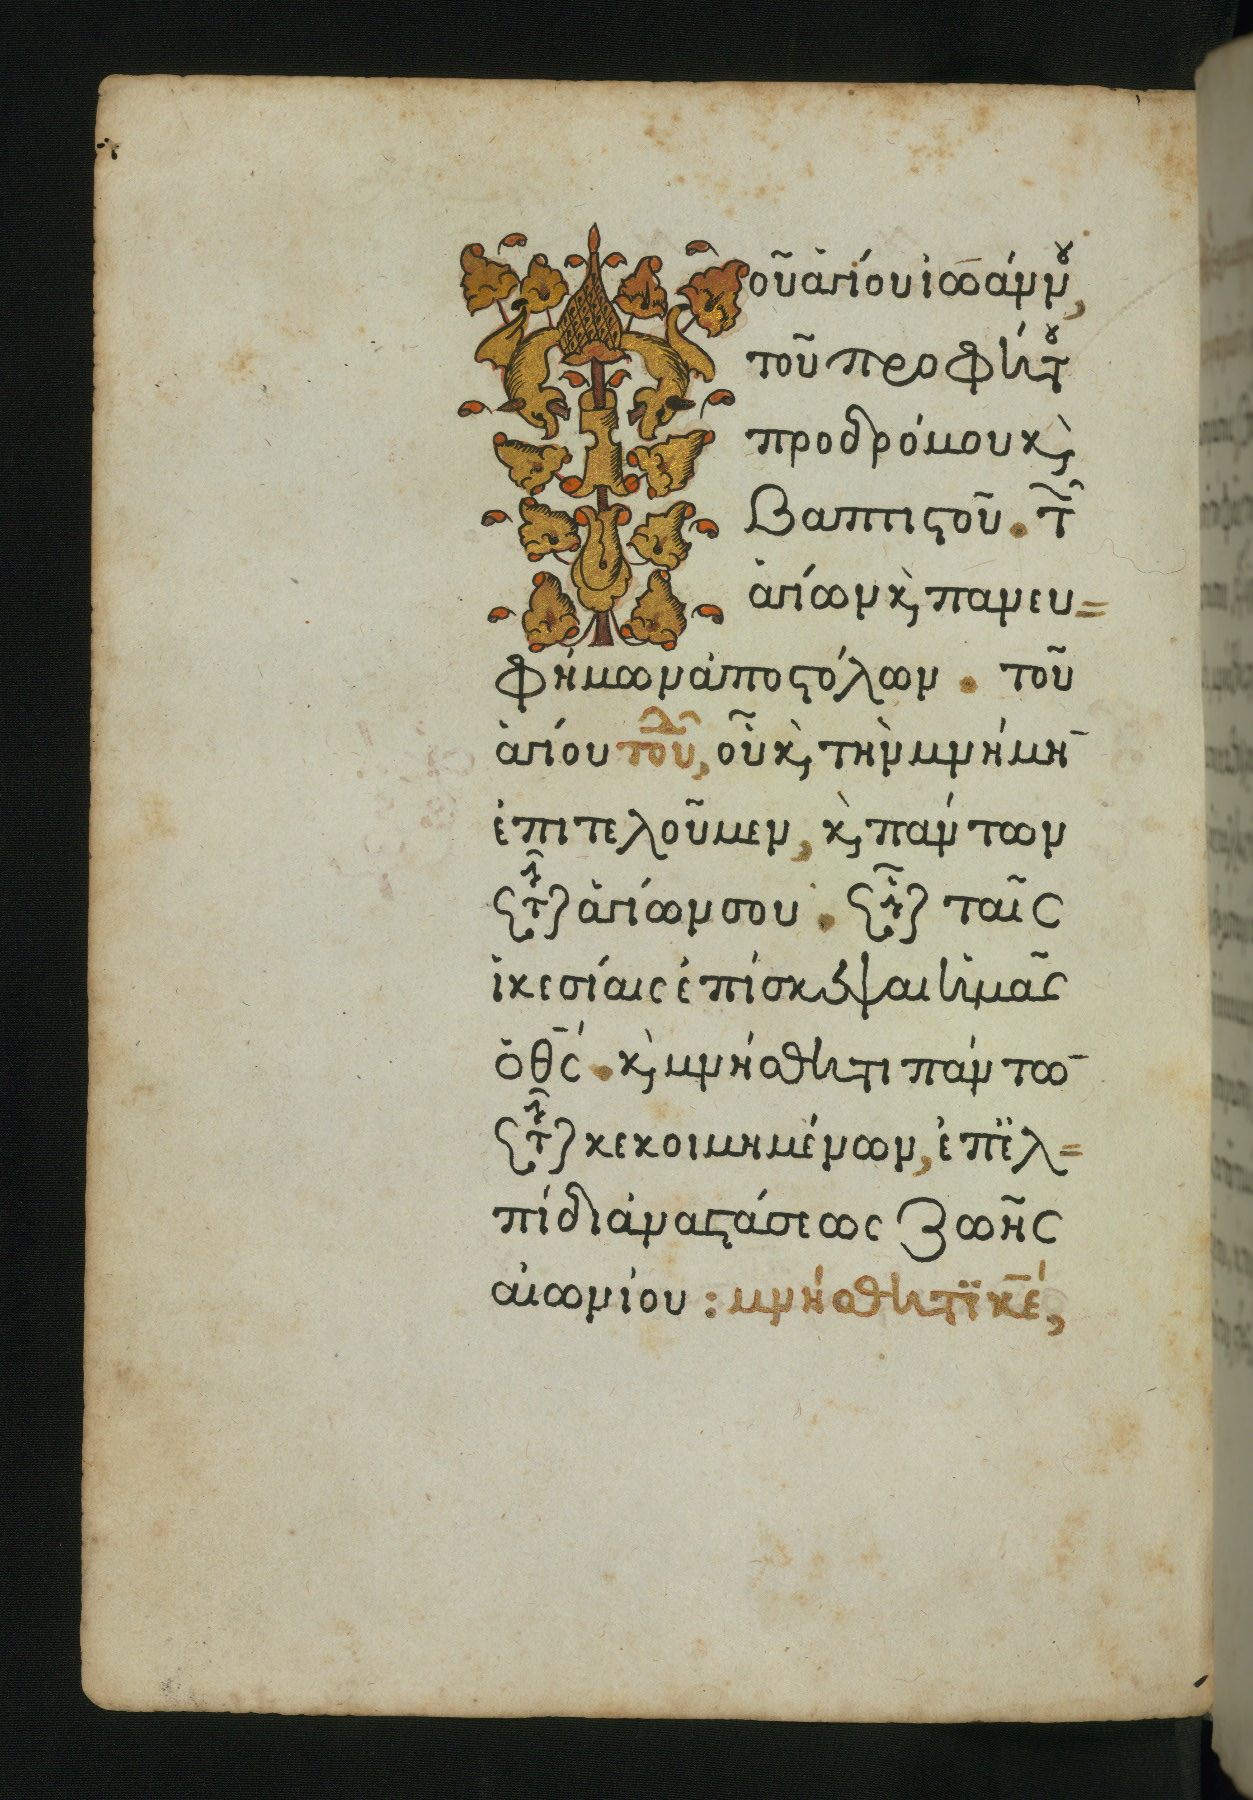 Τοῦ ἁγίου ἰωάννȣ,
τοῦ προφήτȣ
προδρόμου κ̀,
βαπτιϛοῦ. τ῀
ἁγίων κ̀, πανευ=
φήμων ἀποϛόλων. τοῦ
ἁγίου τοῦδ, οὗ κ̀, τὴν μνήμη̄
ἐπιτελοῦμεν, κ̀, πάντων
τῶν ἁγίων σου. ὧν ταῖς
ἱκεσίαις ἐπίσκεψαι ἡμᾶς
ὁ θ̅ς́. κ̀, μνήσθητι πάντω̄
τῶν κεκοιμημένων, ἐπ' ἐλ=
πίδι ἀναϛάσεως ζωῆς
αἰωνίου : μνήσθητι κ̅έ,